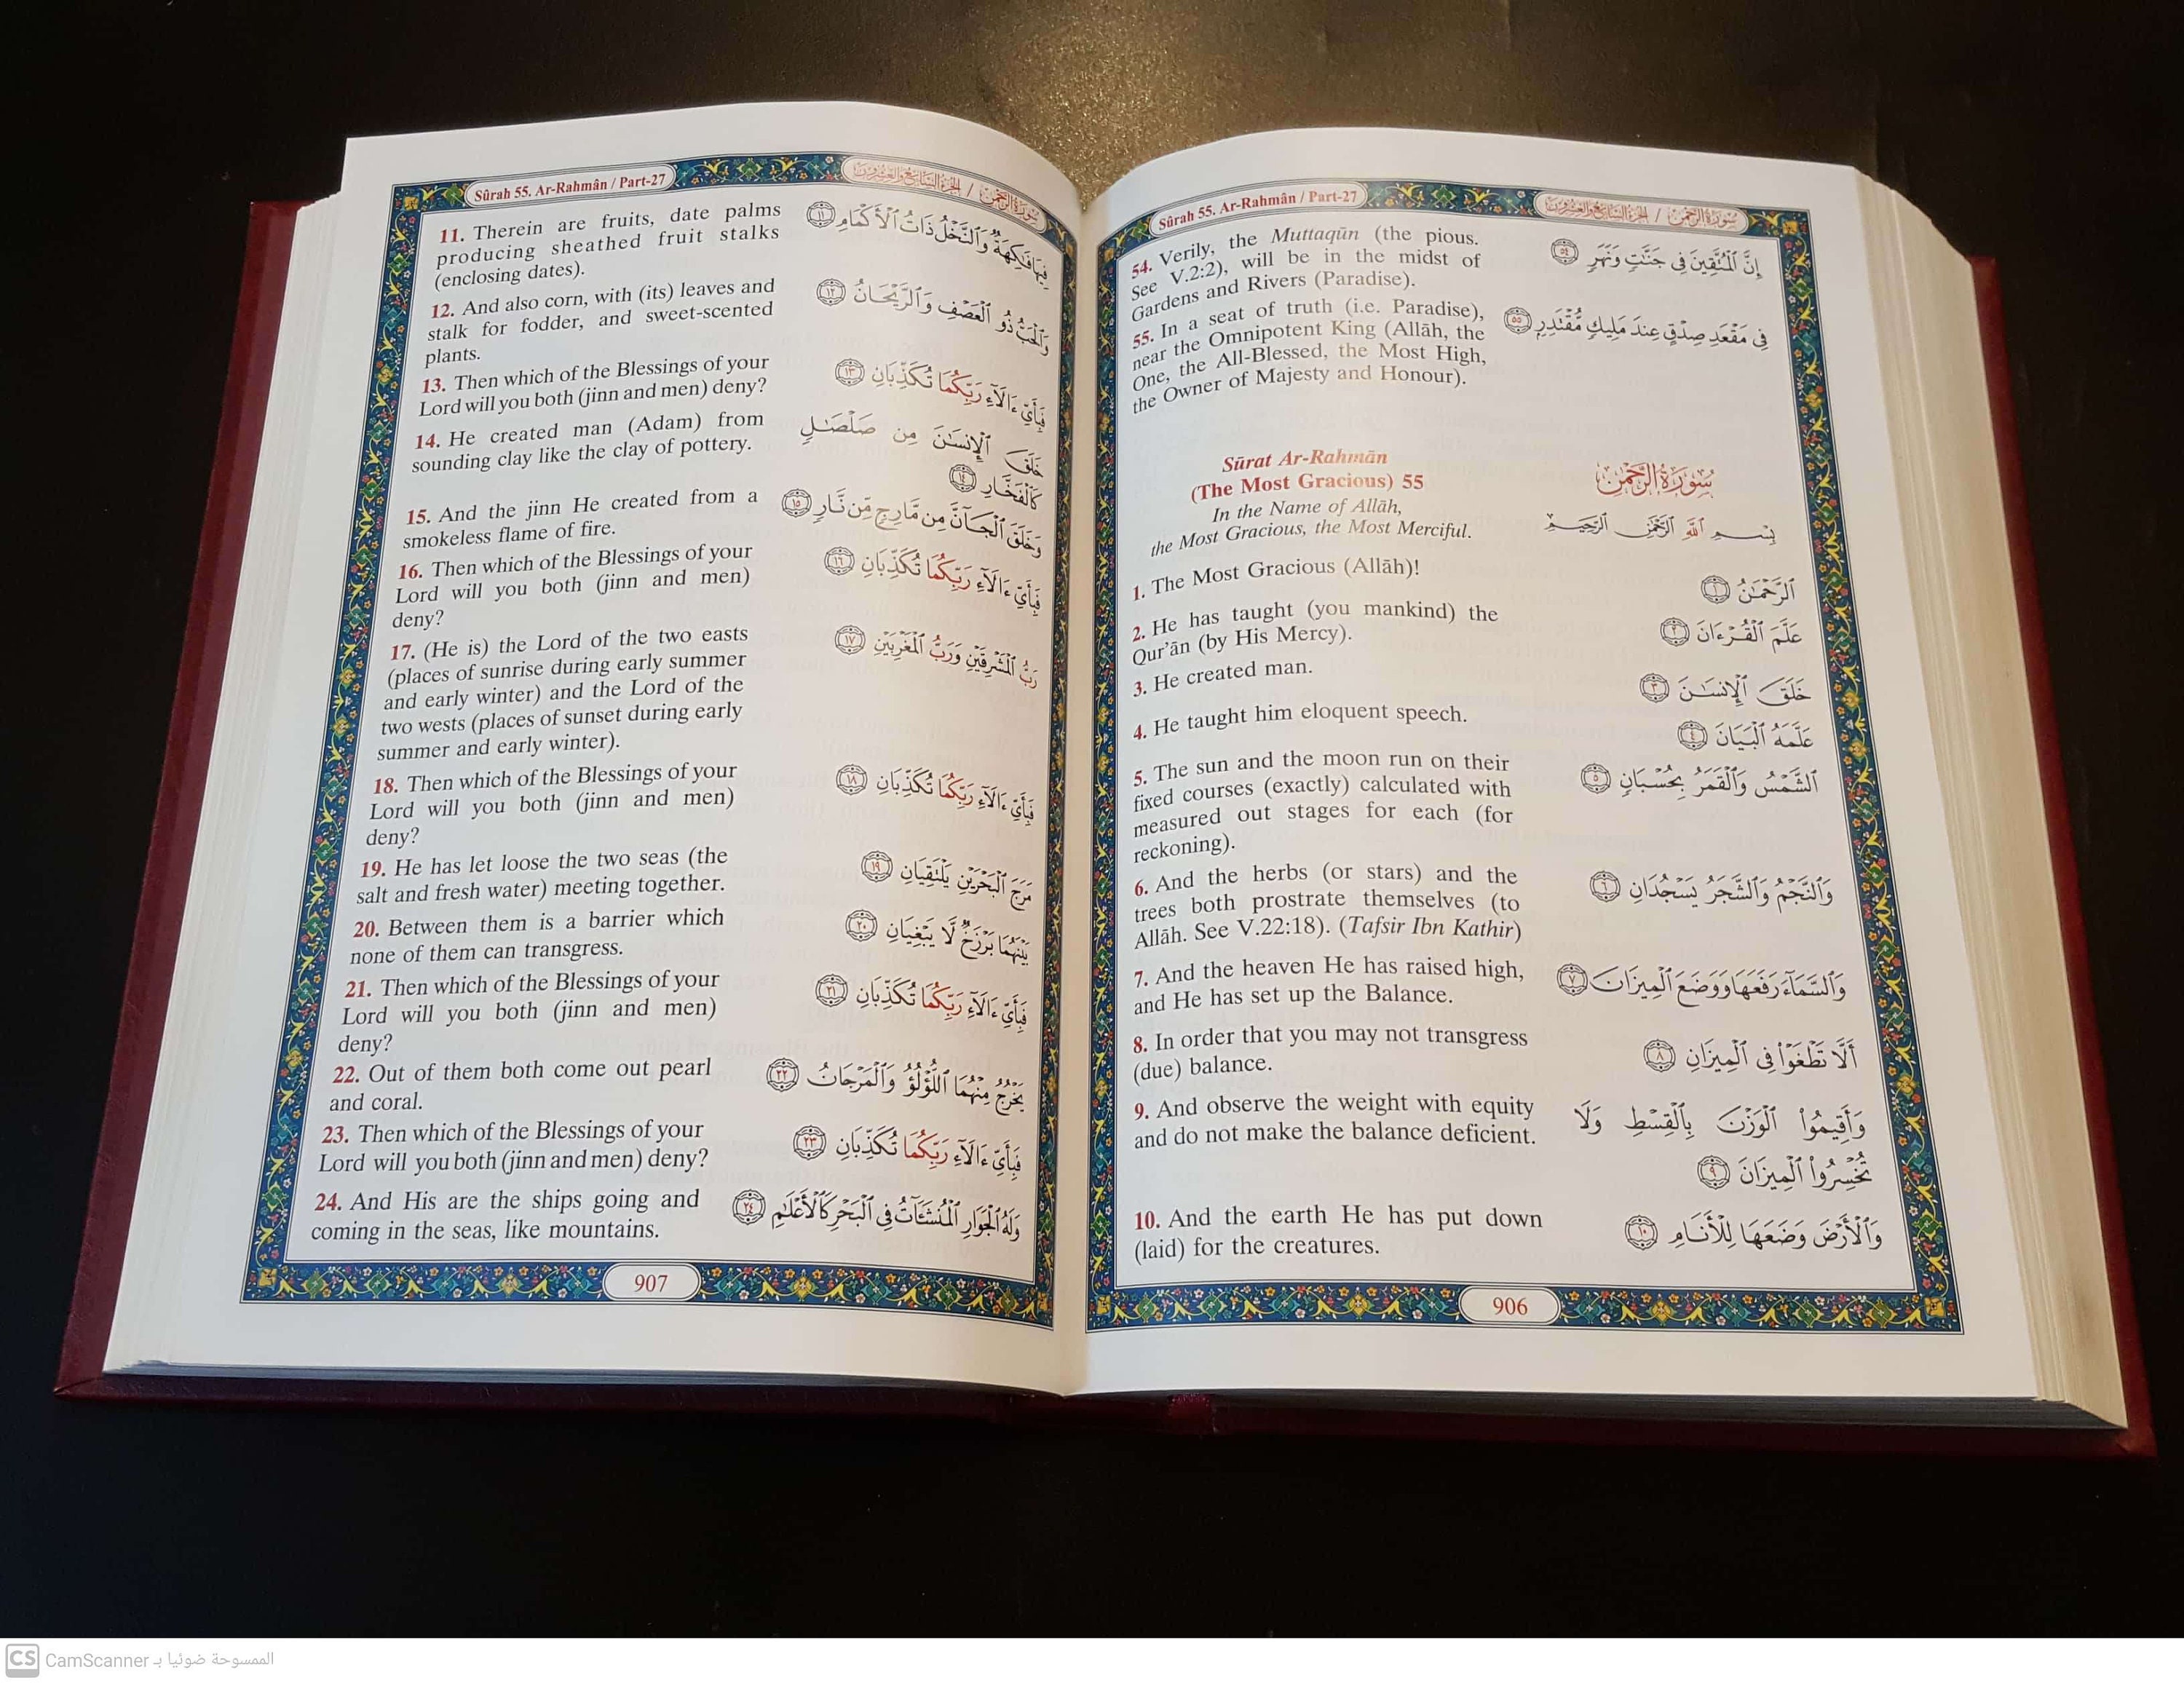 Sûrah 55. Ar-Rahmân / Part-27
سورة الرحمن / الجزء السابع والعشرون
54. Verily, the Muttaqūn (the pious.
See V.2:2), will be in the midst of
Gardens and Rivers (Paradise).
إِنَّ ٱلْمُتَّقِينَ فِى جَنَّـٰتٍ وَنَهَرٍ ٥٤
55. In a seat of truth (i.e. Paradise),
near the Omnipotent King (Allāh, the
One, the All-Blessed, the Most High,
the Owner of Majesty and Honour).
فِى مَقْعَدِ صِدْقٍ عِندَ مَلِيكٍ مُّقْتَدِرٍۭ ٥٥
Sūrat Ar-Rahmān
(The Most Gracious) 55
سُورَةُ الرَّحْمٰن
In the Name of Allāh,
the Most Gracious, the Most Merciful.
بِسْمِ ٱللَّهِ ٱلرَّحْمَـٰنِ ٱلرَّحِيمِ
1. The Most Gracious (Allāh)!
ٱلرَّحْمَـٰنُ ١
2. He has taught (you mankind) the
Qur’ān (by His Mercy).
عَلَّمَ ٱلْقُرْءَانَ ٢
3. He created man.
خَلَقَ ٱلْإِنسَـٰنَ ٣
4. He taught him eloquent speech.
عَلَّمَهُ ٱلْبَيَانَ ٤
5. The sun and the moon run on their
fixed courses (exactly) calculated with
measured out stages for each (for
reckoning).
ٱلشَّمْسُ وَٱلْقَمَرُ بِحُسْبَانٍ ٥
6. And the herbs (or stars) and the
trees both prostrate themselves (to
Allāh. See V.22:18). (Tafsir Ibn Kathir)
وَٱلنَّجْمُ وَٱلشَّجَرُ يَسْجُدَانِ ٦
7. And the heaven He has raised high,
and He has set up the Balance.
وَٱلسَّمَآءَ رَفَعَهَا وَوَضَعَ ٱلْمِيزَانَ ٧
8. In order that you may not transgress
(due) balance.
أَلَّا تَطْغَوْا۟ فِى ٱلْمِيزَانِ ٨
9. And observe the weight with equity
and do not make the balance deficient.
وَأَقِيمُوا۟ ٱلْوَزْنَ بِٱلْقِسْطِ وَلَا
تُخْسِرُوا۟ ٱلْمِيزَانَ ٩
10. And the earth He has put down
(laid) for the creatures.
وَٱلْأَرْضَ وَضَعَهَا لِلْأَنَامِ ١٠
906
Sûrah 55. Ar-Rahmân / Part-27
سورة الرحمن / الجزء السابع والعشرون
11. Therein are fruits, date palms
producing sheathed fruit stalks
(enclosing dates).
فِيهَا فَـٰكِهَةٌ وَٱلنَّخْلُ ذَاتُ ٱلْأَكْمَامِ ١١
12. And also corn, with (its) leaves and
stalk for fodder, and sweet-scented
plants.
وَٱلْحَبُّ ذُو ٱلْعَصْفِ وَٱلرَّيْحَانُ ١٢
13. Then which of the Blessings of your
Lord will you both (jinn and men) deny?
فَبِأَىِّ ءَالَآءِ رَبِّكُمَا تُكَذِّبَانِ ١٣
14. He created man (Adam) from
sounding clay like the clay of pottery.
خَلَقَ ٱلْإِنسَـٰنَ مِن صَلْصَـٰلٍ
كَٱلْفَخَّارِ ١٤
15. And the jinn He created from a
smokeless flame of fire.
وَخَلَقَ ٱلْجَآنَّ مِن مَّارِجٍ مِّن نَّارٍ ١٥
16. Then which of the Blessings of your
Lord will you both (jinn and men)
deny?
فَبِأَىِّ ءَالَآءِ رَبِّكُمَا تُكَذِّبَانِ ١٦
17. (He is) the Lord of the two easts
(places of sunrise during early summer
and early winter) and the Lord of the
two wests (places of sunset during early
summer and early winter).
رَبُّ ٱلْمَشْرِقَيْنِ وَرَبُّ ٱلْمَغْرِبَيْنِ ١٧
18. Then which of the Blessings of your
Lord will you both (jinn and men)
deny?
فَبِأَىِّ ءَالَآءِ رَبِّكُمَا تُكَذِّبَانِ ١٨
19. He has let loose the two seas (the
salt and fresh water) meeting together.
مَرَجَ ٱلْبَحْرَيْنِ يَلْتَقِيَانِ ١٩
20. Between them is a barrier which
none of them can transgress.
بَيْنَهُمَا بَرْزَخٌ لَّا يَبْغِيَانِ ٢٠
21. Then which of the Blessings of your
Lord will you both (jinn and men)
deny?
فَبِأَىِّ ءَالَآءِ رَبِّكُمَا تُكَذِّبَانِ ٢١
22. Out of them both come out pearl
and coral.
يَخْرُجُ مِنْهُمَا ٱللُّؤْلُؤُ وَٱلْمَرْجَانُ ٢٢
23. Then which of the Blessings of your
Lord will you both (jinn and men) deny?
فَبِأَىِّ ءَالَآءِ رَبِّكُمَا تُكَذِّبَانِ ٢٣
24. And His are the ships going and
coming in the seas, like mountains.
وَلَهُ ٱلْجَوَارِ ٱلْمُنشَـَٔاتُ فِى ٱلْبَحْرِ كَٱلْأَعْلَـٰمِ ٢٤
907
CS CamScanner الممسوحة ضوئيا بـ